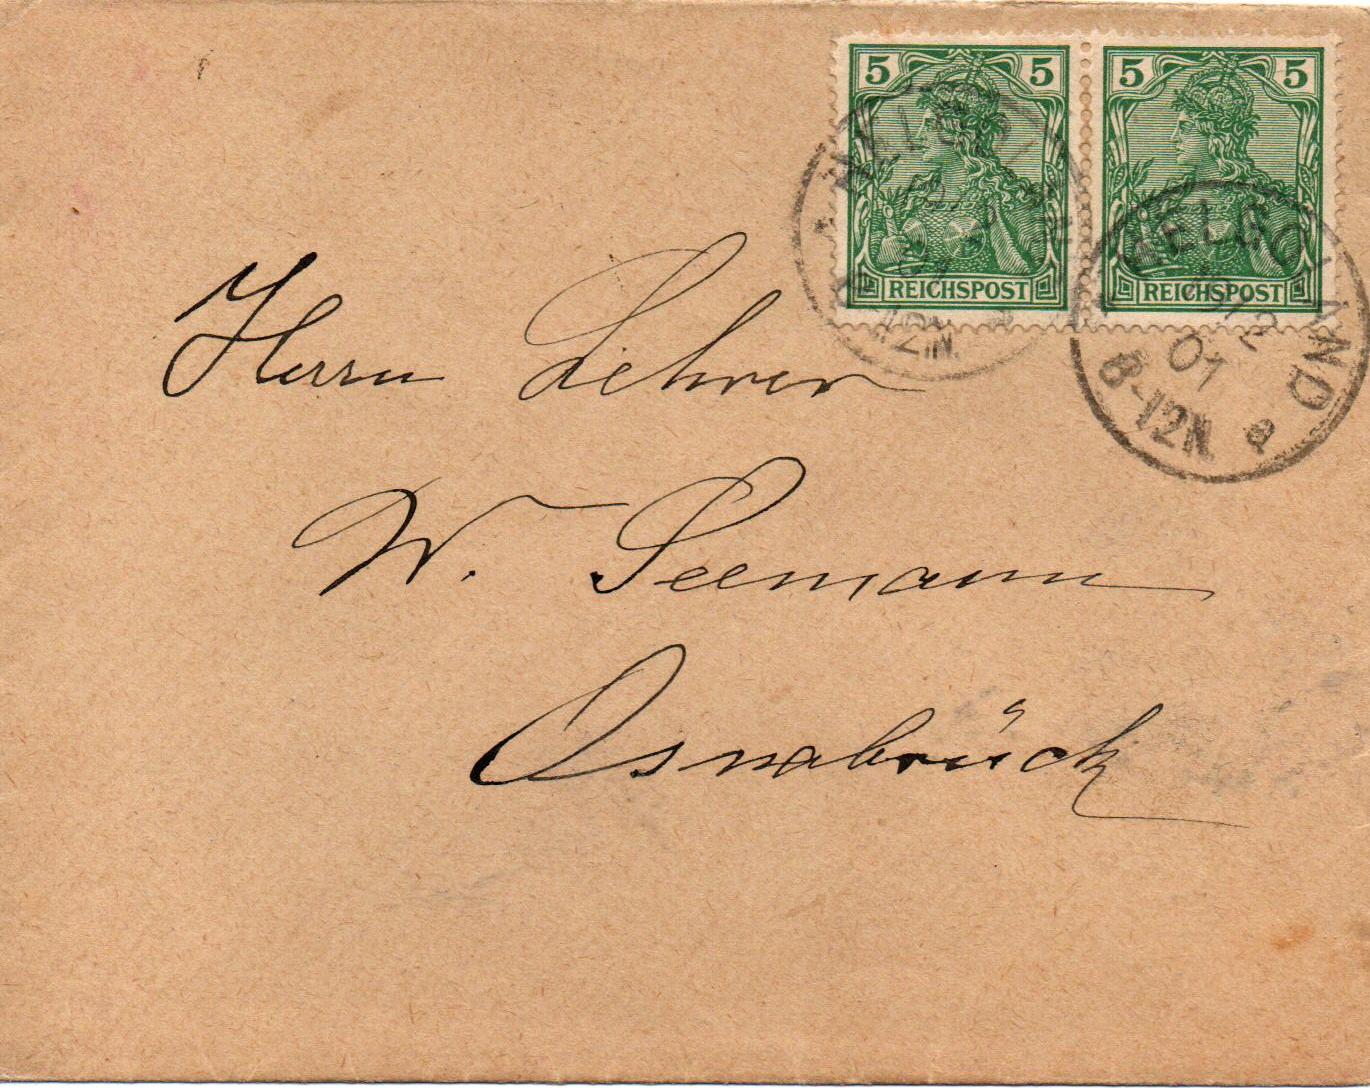 5 5 5 5
REICHSPOST REICHSPOST
HELGOLAND
01
8-12N. a
Herrn Lehrer
W. Seemann
Osnabrück